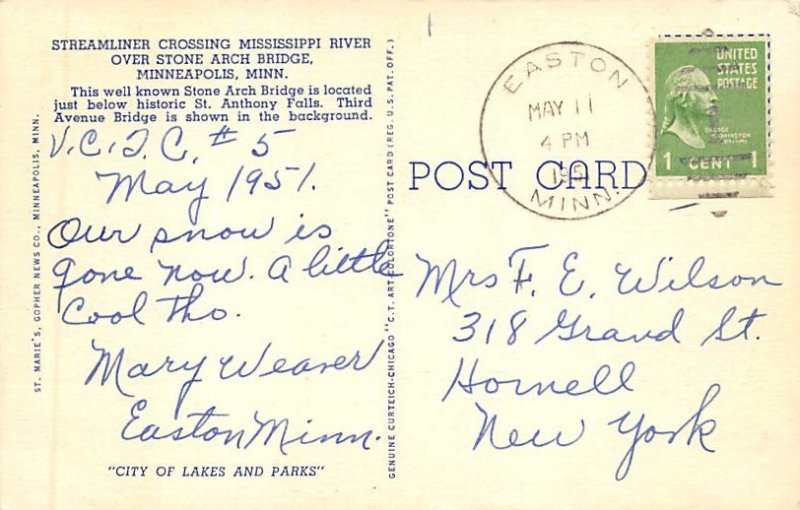 STREAMLINER CROSSING MISSISSIPPI RIVER
OVER STONE ARCH BRIDGE,
MINNEAPOLIS, MINN.
This well known Stone Arch Bridge is located
just below historic St. Anthony Falls. Third
Avenue Bridge is shown in the background.
V.C.J.C. #5
May 1951.
Our snow is
gone now. A little
Cool tho.
Mary Weaver
Easton Minn.
"CITY OF LAKES AND PARKS"
ST. MARIE'S, GOPHER NEWS CO., MINNEAPOLIS, MINN.
GENUINE CURTEICH-CHICAGO "C.T. ART-COLORTONE" POST CARD (REG. U.S. PAT. OFF.)
POST CARD
EASTON
MAY 11
4 PM
195
MINN.
UNITED
STATES
POSTAGE
GEORGE
WASHINGTON
1 CENT 1
Mrs F. E. Wilson
318 Grand St.
Hornell
New York